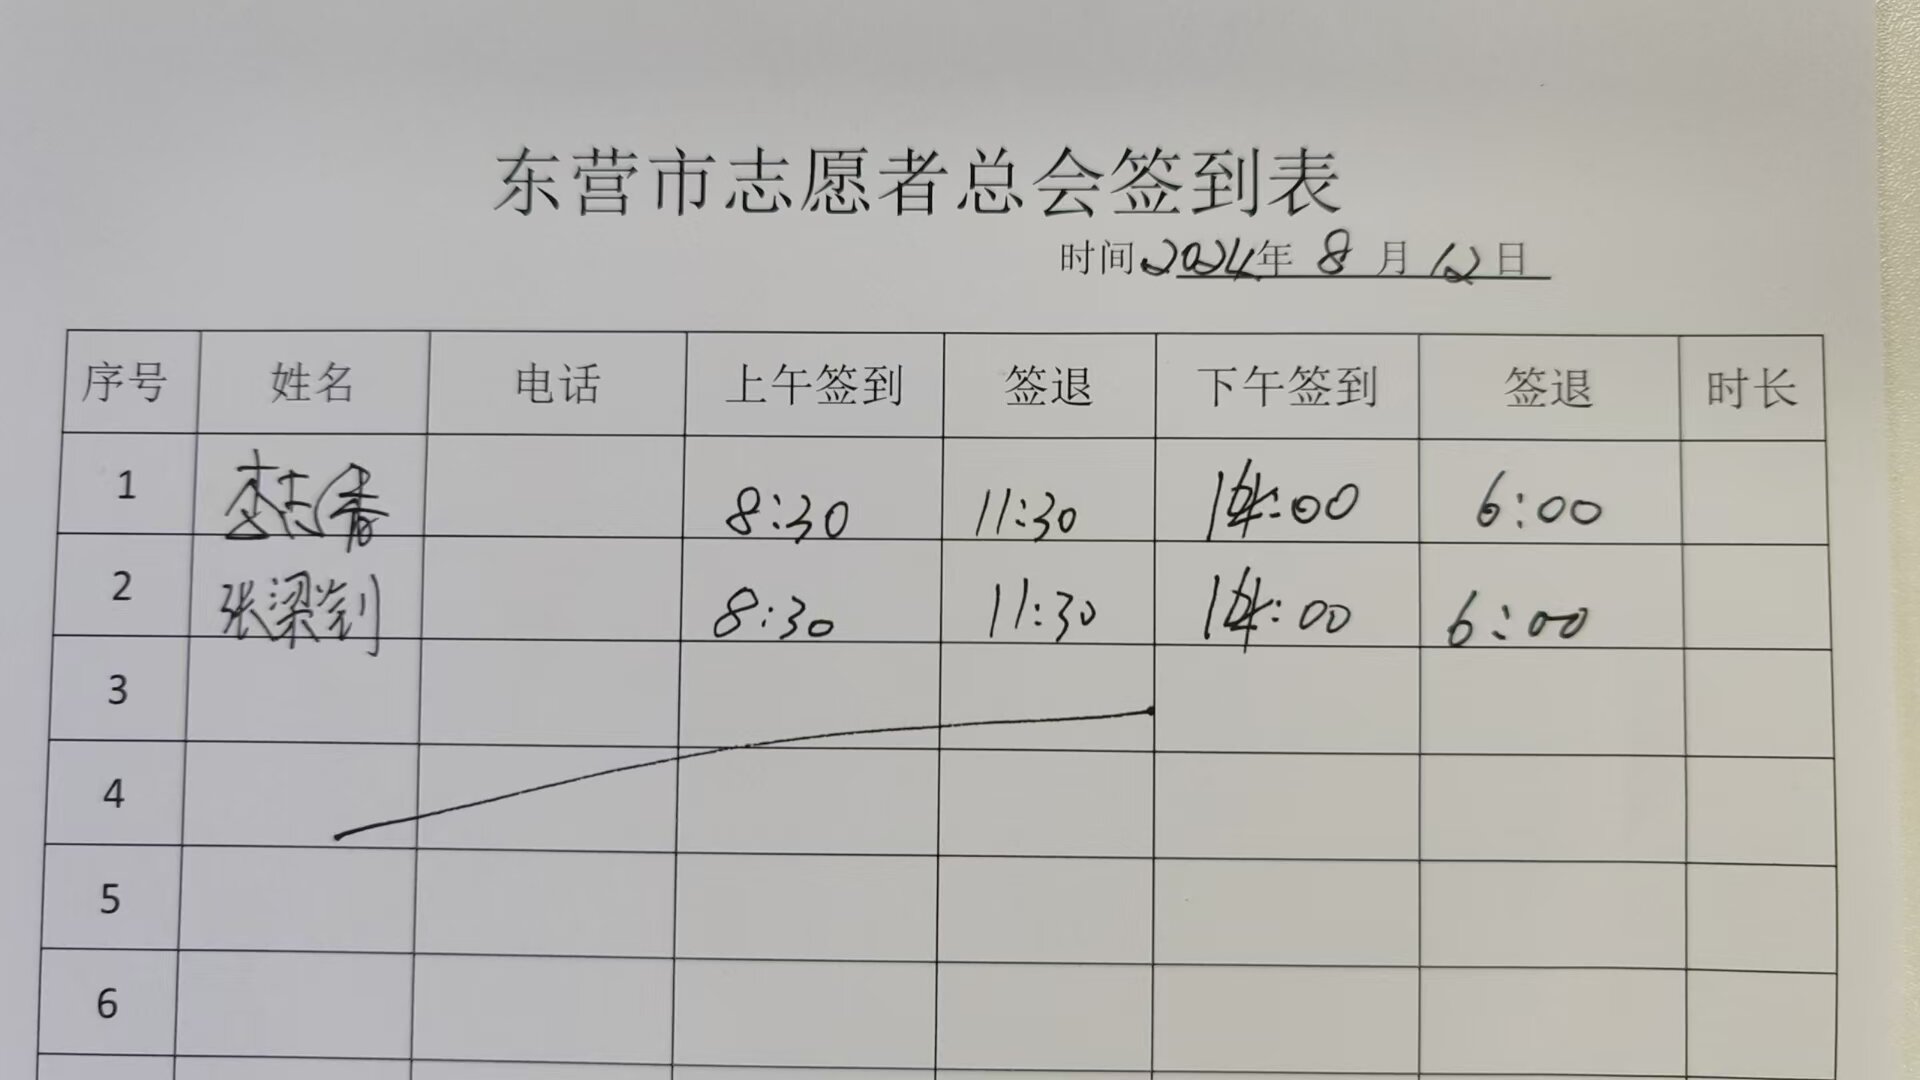 东营市志愿者总会签到表
时间2024年 8 月 12 日
序号 姓名 电话 上午签到 签退 下午签到 签退 时长
1 李志香 8:30 11:30 14:00 6:00
2 张梁 8:30 11:30 14:00 6:00
3
4
5
6